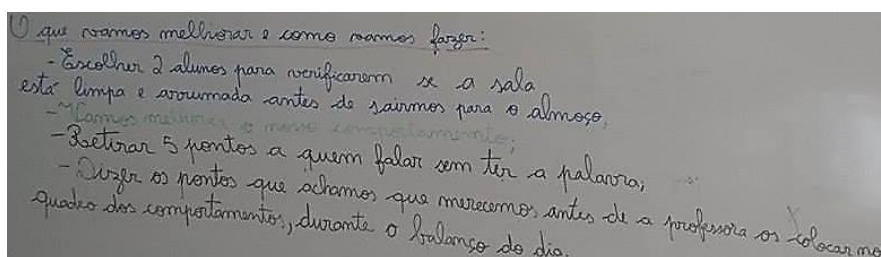 O que vamos melhorar e como vamos fazer:
- Escolher 2 alunos para verificarem se a sala
está limpa e arrumada antes de sairmos para o almoço.
- Vamos melhorar o nosso comportamento;
- Retirar 5 pontos a quem falar sem ter a palavra;
- Dizer os pontos que achamos que merecemos antes de a professora os colocar no
quadro dos comportamentos, durante o balanço do dia.